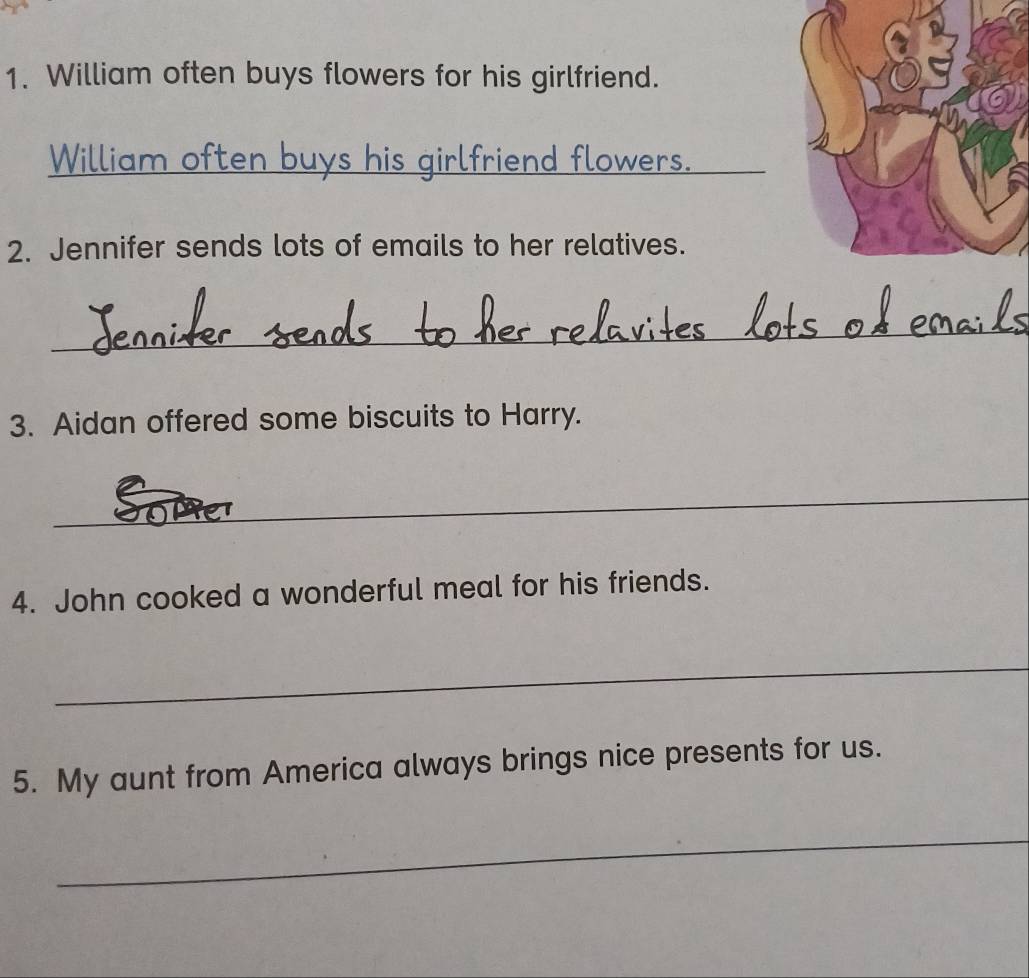 1. William often buys flowers for his girlfriend.
William often buys his girlfriend flowers.
2. Jennifer sends lots of emails to her relatives.
Jennifer sends to her relavites lots of emails
3. Aidan offered some biscuits to Harry.
4. John cooked a wonderful meal for his friends.
5. My aunt from America always brings nice presents for us.